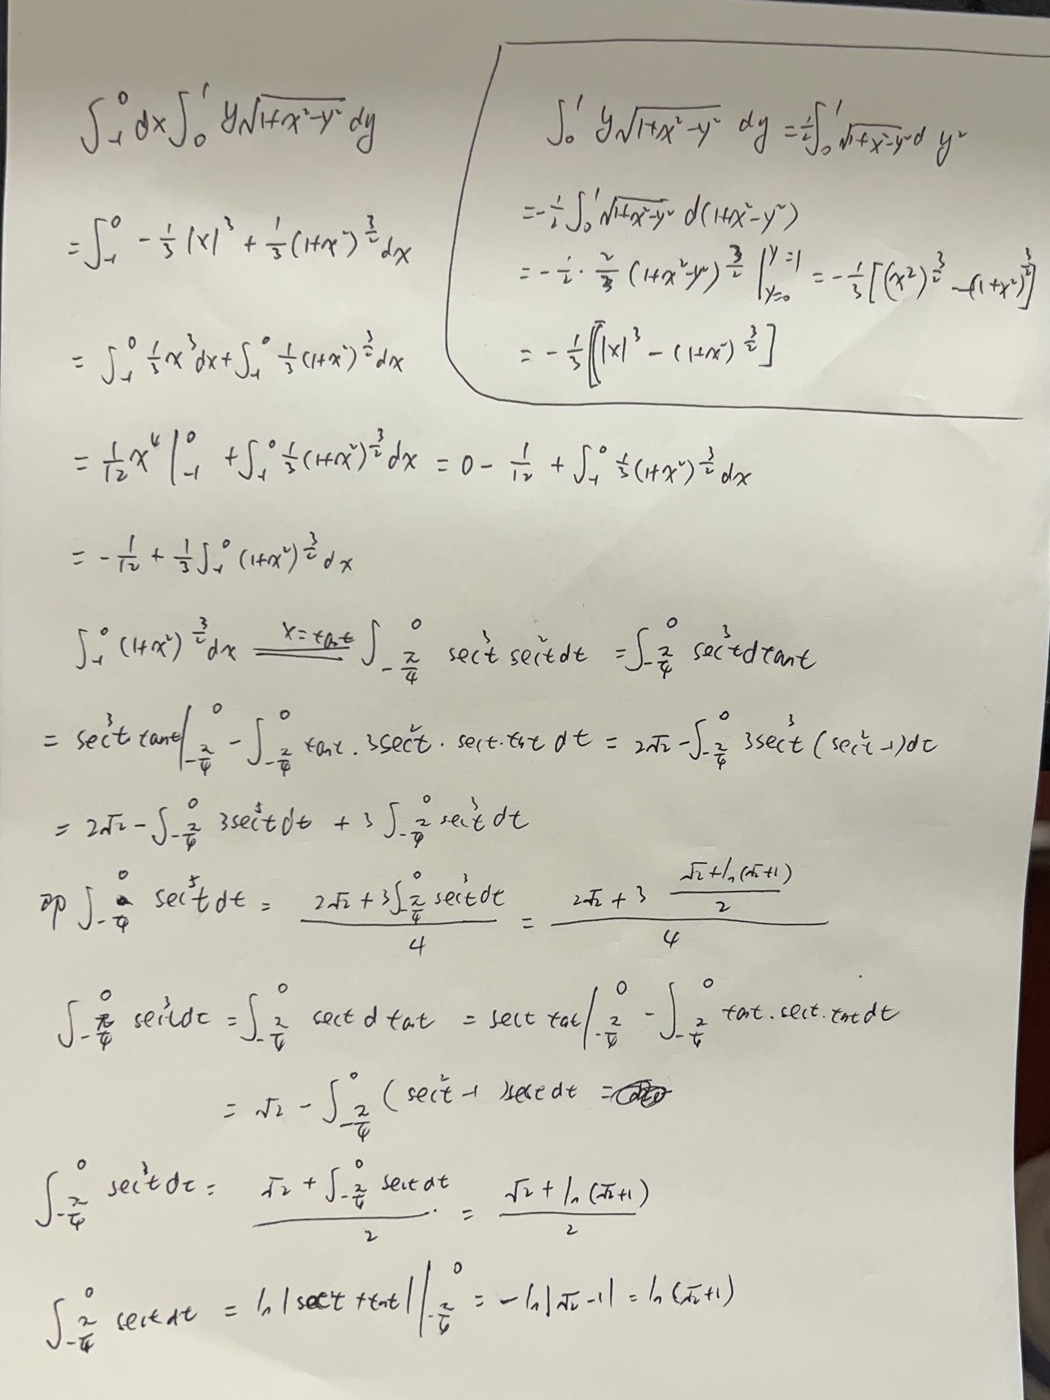 ∫_{-1}^{0} dx ∫_{0}^{1} y√(1+x²-y²) dy
= ∫_{-1}^{0} -1/3 |x|³ + 1/3 (1+x²)^{3/2} dx
= ∫_{-1}^{0} 1/3 x³ dx + ∫_{-1}^{0} 1/3 (1+x²)^{3/2} dx
∫_{0}^{1} y√(1+x²-y²) dy = 1/2 ∫_{0}^{1} √(1+x²-y²) d y²
= -1/2 ∫_{0}^{1} √(1+x²-y²) d(1+x²-y²)
= -1/2 · 2/3 (1+x²-y²)^{3/2} |_{y=0}^{y=1} = -1/3 [(x²)^{3/2} - (1+x²)^{3/2}]
= -1/3 [|x|³ - (1+x²)^{3/2}]
= 1/12 x⁴ |_{-1}^{0} + ∫_{-1}^{0} 1/3 (1+x²)^{3/2} dx = 0 - 1/12 + ∫_{-1}^{0} 1/3 (1+x²)^{3/2} dx
= -1/12 + 1/3 ∫_{-1}^{0} (1+x²)^{3/2} dx
∫_{-1}^{0} (1+x²)^{3/2} dx =(x=tant)= ∫_{-π/4}^{0} sec³t sec²t dt = ∫_{-π/4}^{0} sec³t d tant
= sec³t tant |_{-π/4}^{0} - ∫_{-π/4}^{0} tant · 3sec²t · sect · tant dt = 2√2 - ∫_{-π/4}^{0} 3sec³t (sec²t -1) dt
= 2√2 - ∫_{-π/4}^{0} 3sec⁵t dt + 3 ∫_{-π/4}^{0} sec³t dt
即 ∫_{-π/4}^{0} sec⁵t dt = (2√2 + 3∫_{-π/4}^{0} sec³t dt)/4 = (2√2 + 3 (√2+ln(√2+1))/2)/4
∫_{-π/4}^{0} sec³t dt = ∫_{-π/4}^{0} sect d tant = sect tant |_{-π/4}^{0} - ∫_{-π/4}^{0} tant · sect · tant dt
= √2 - ∫_{-π/4}^{0} (sec²t -1) sect dt =
∫_{-π/4}^{0} sec³t dt = (√2 + ∫_{-π/4}^{0} sect dt)/2 = (√2 + ln(√2+1))/2
∫_{-π/4}^{0} sect dt = ln|sect + tant| |_{-π/4}^{0} = -ln|√2 -1| = ln(√2+1)